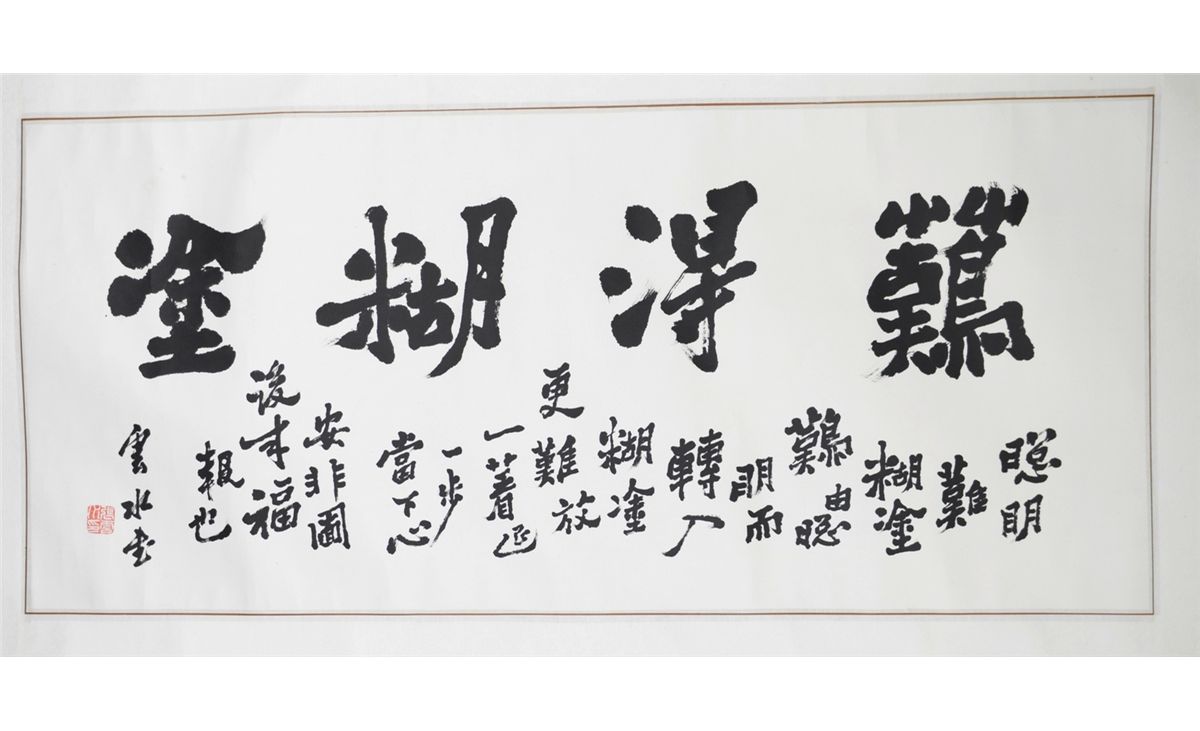 難得糊塗
聰明
難
糊塗
難由聰
明而
轉入
糊塗
更難放
一著退
一步
當下心
安非圖
後來福
報也
雲水書